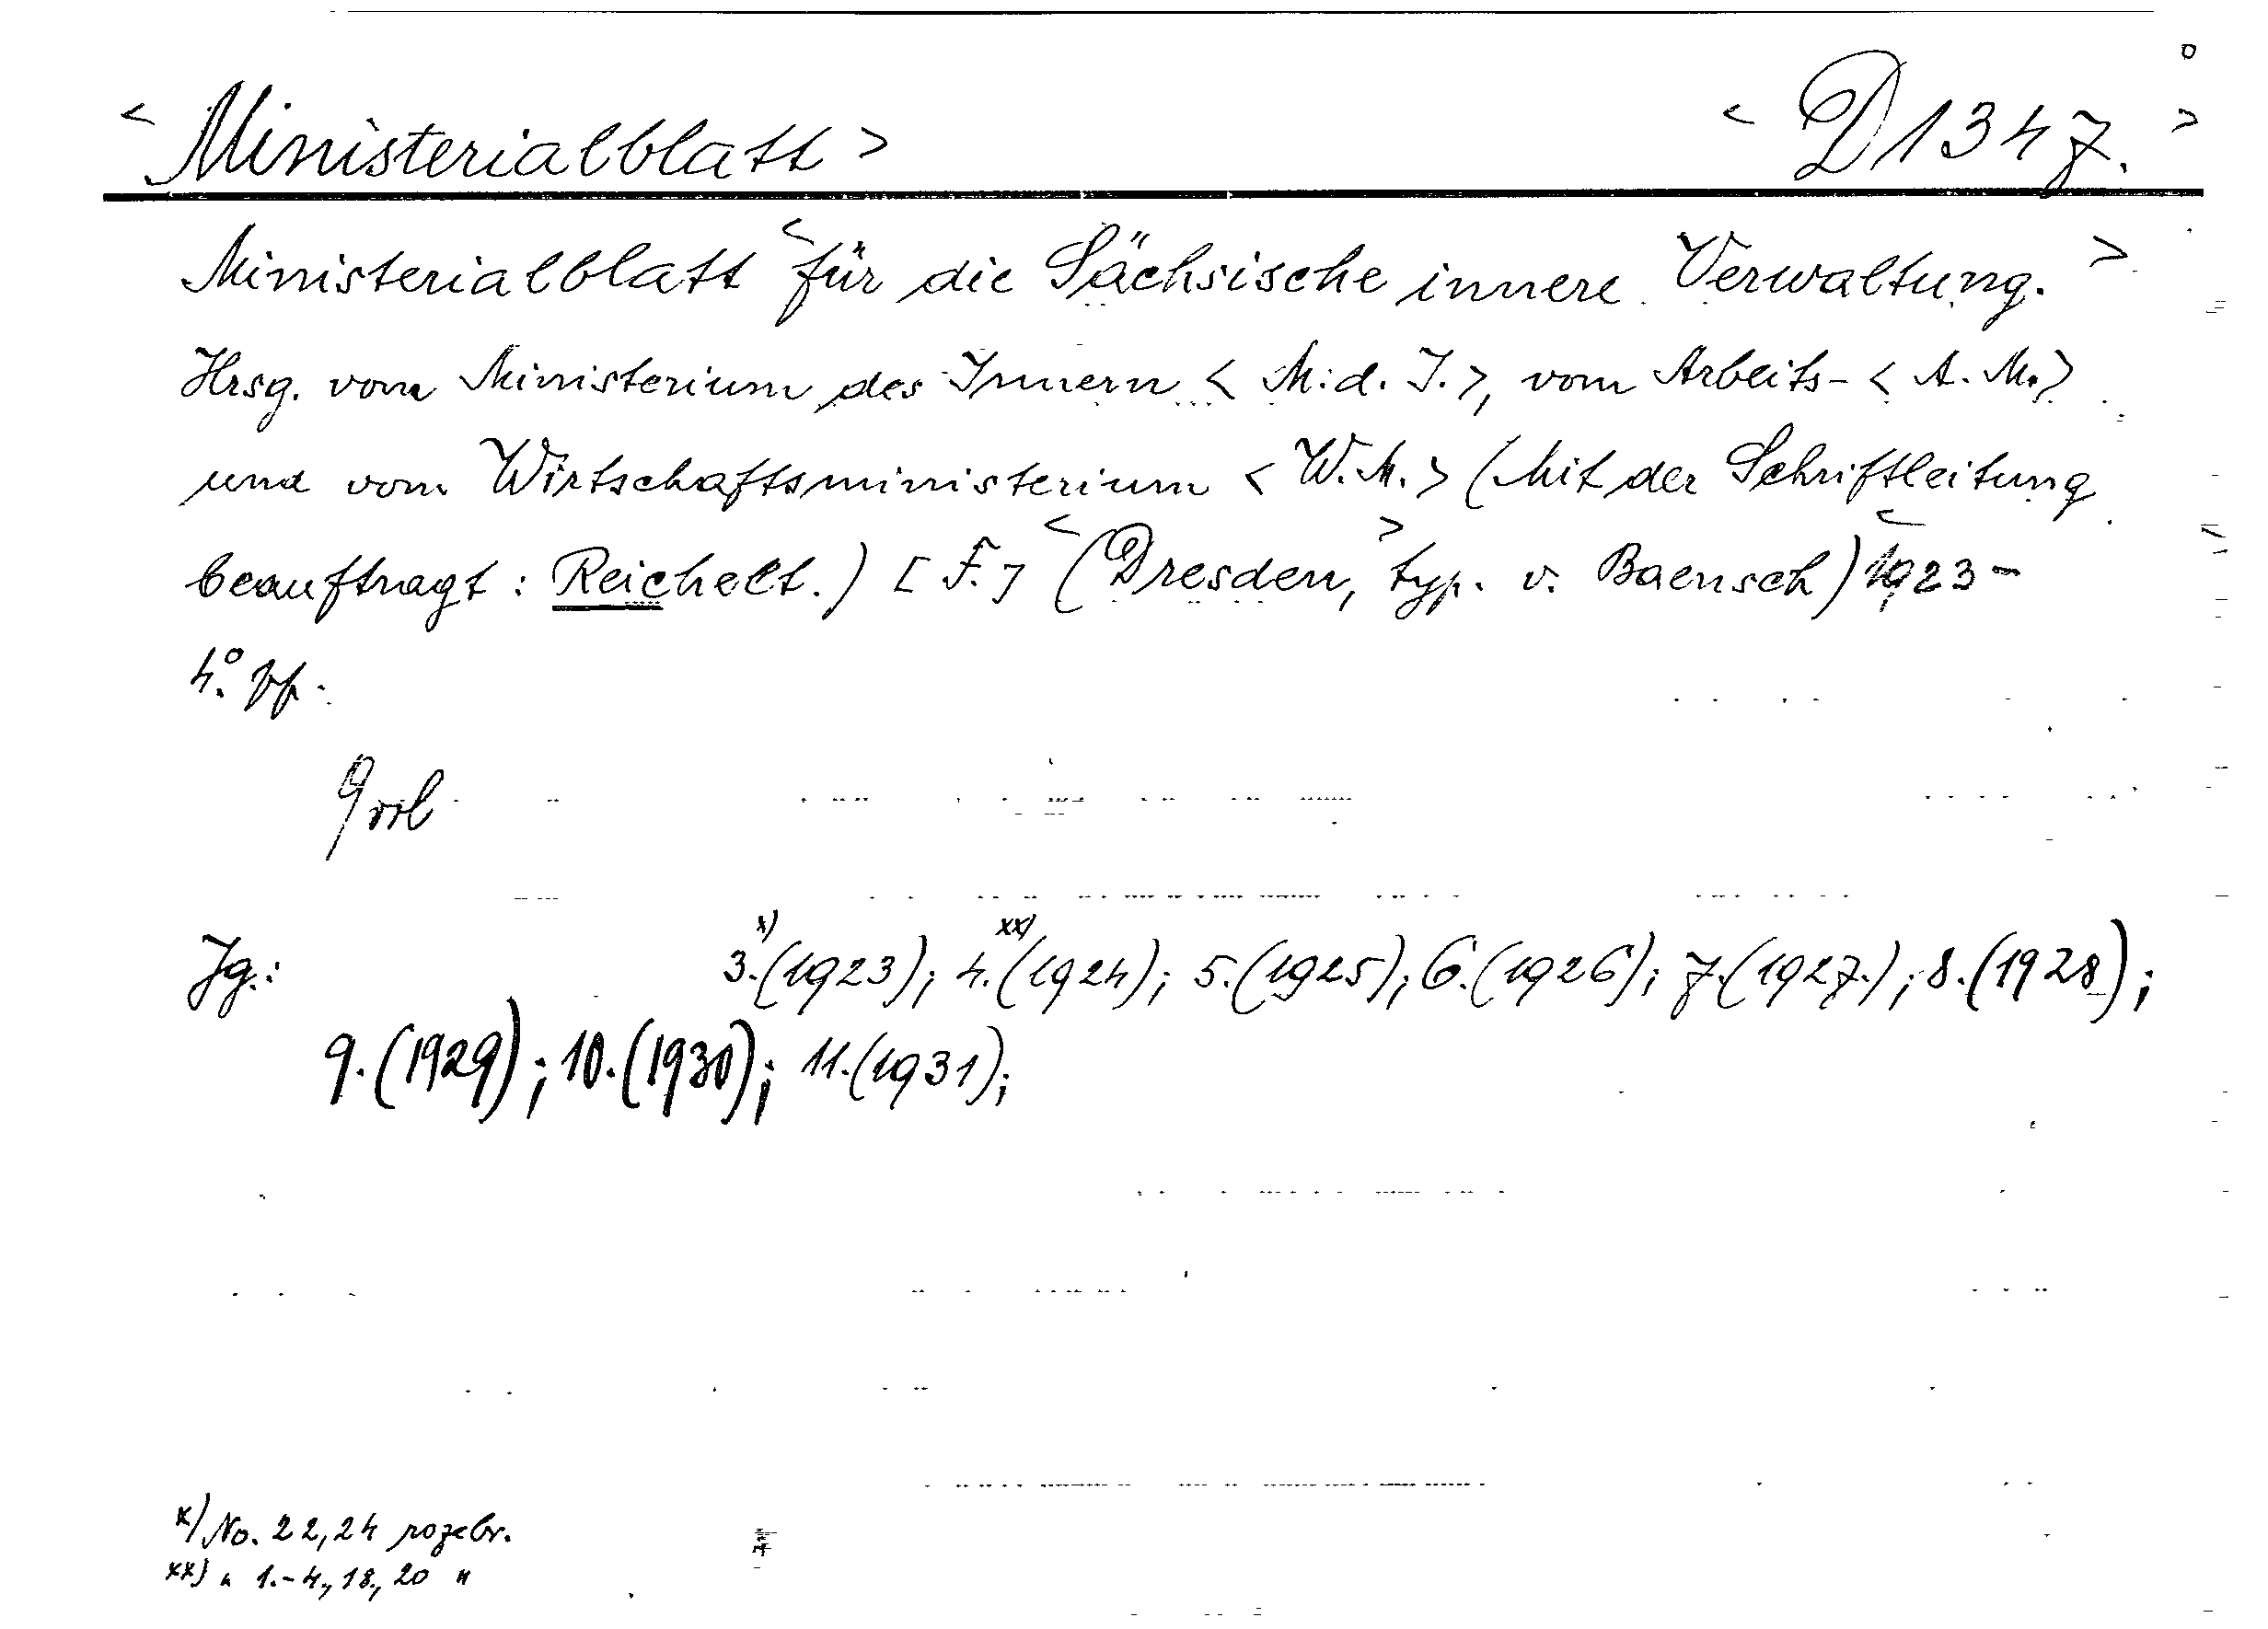 < Ministerialblatt > < D 1347. >
Ministerialblatt < für die Sächsische innere Verwaltung. >
Hrsg. vom Ministerium des Innern < M. d. I. >, vom Arbeits- < A. M. >
und vom Wirtschaftsministerium < W. M. > (Mit der Schriftleitung
beauftragt : Reichelt.) [F.] < (Dresden, > typ. v. Baensch) < 1923 -
4°.
Jg.: 3.x) (1923); 4.xx) (1924); 5. (1925); 6. (1926); 7. (1927.); 8. (1928);
9. (1929); 10. (1930); 11. (1931);
x) No. 22, 24 rozebr.
xx) " 1.-4., 18., 20 "